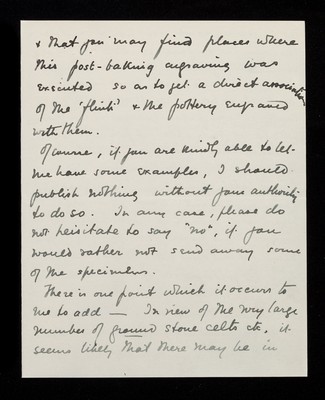 & that you may find places where
this post-baking engraving was
executed so as to get a direct association
of the "flints" & the pottery engraved
with them.
Of course, if you are kindly able to let
me have some examples, I should
publish nothing without your authority
to do so. In any case, please do
not heisitate to say "no", if you
would rather not send away some
of the specimens.
There is one point which it occurs to
me to add — In view of the very large
number of ground stone celts etc, it
seems likely that there may be in